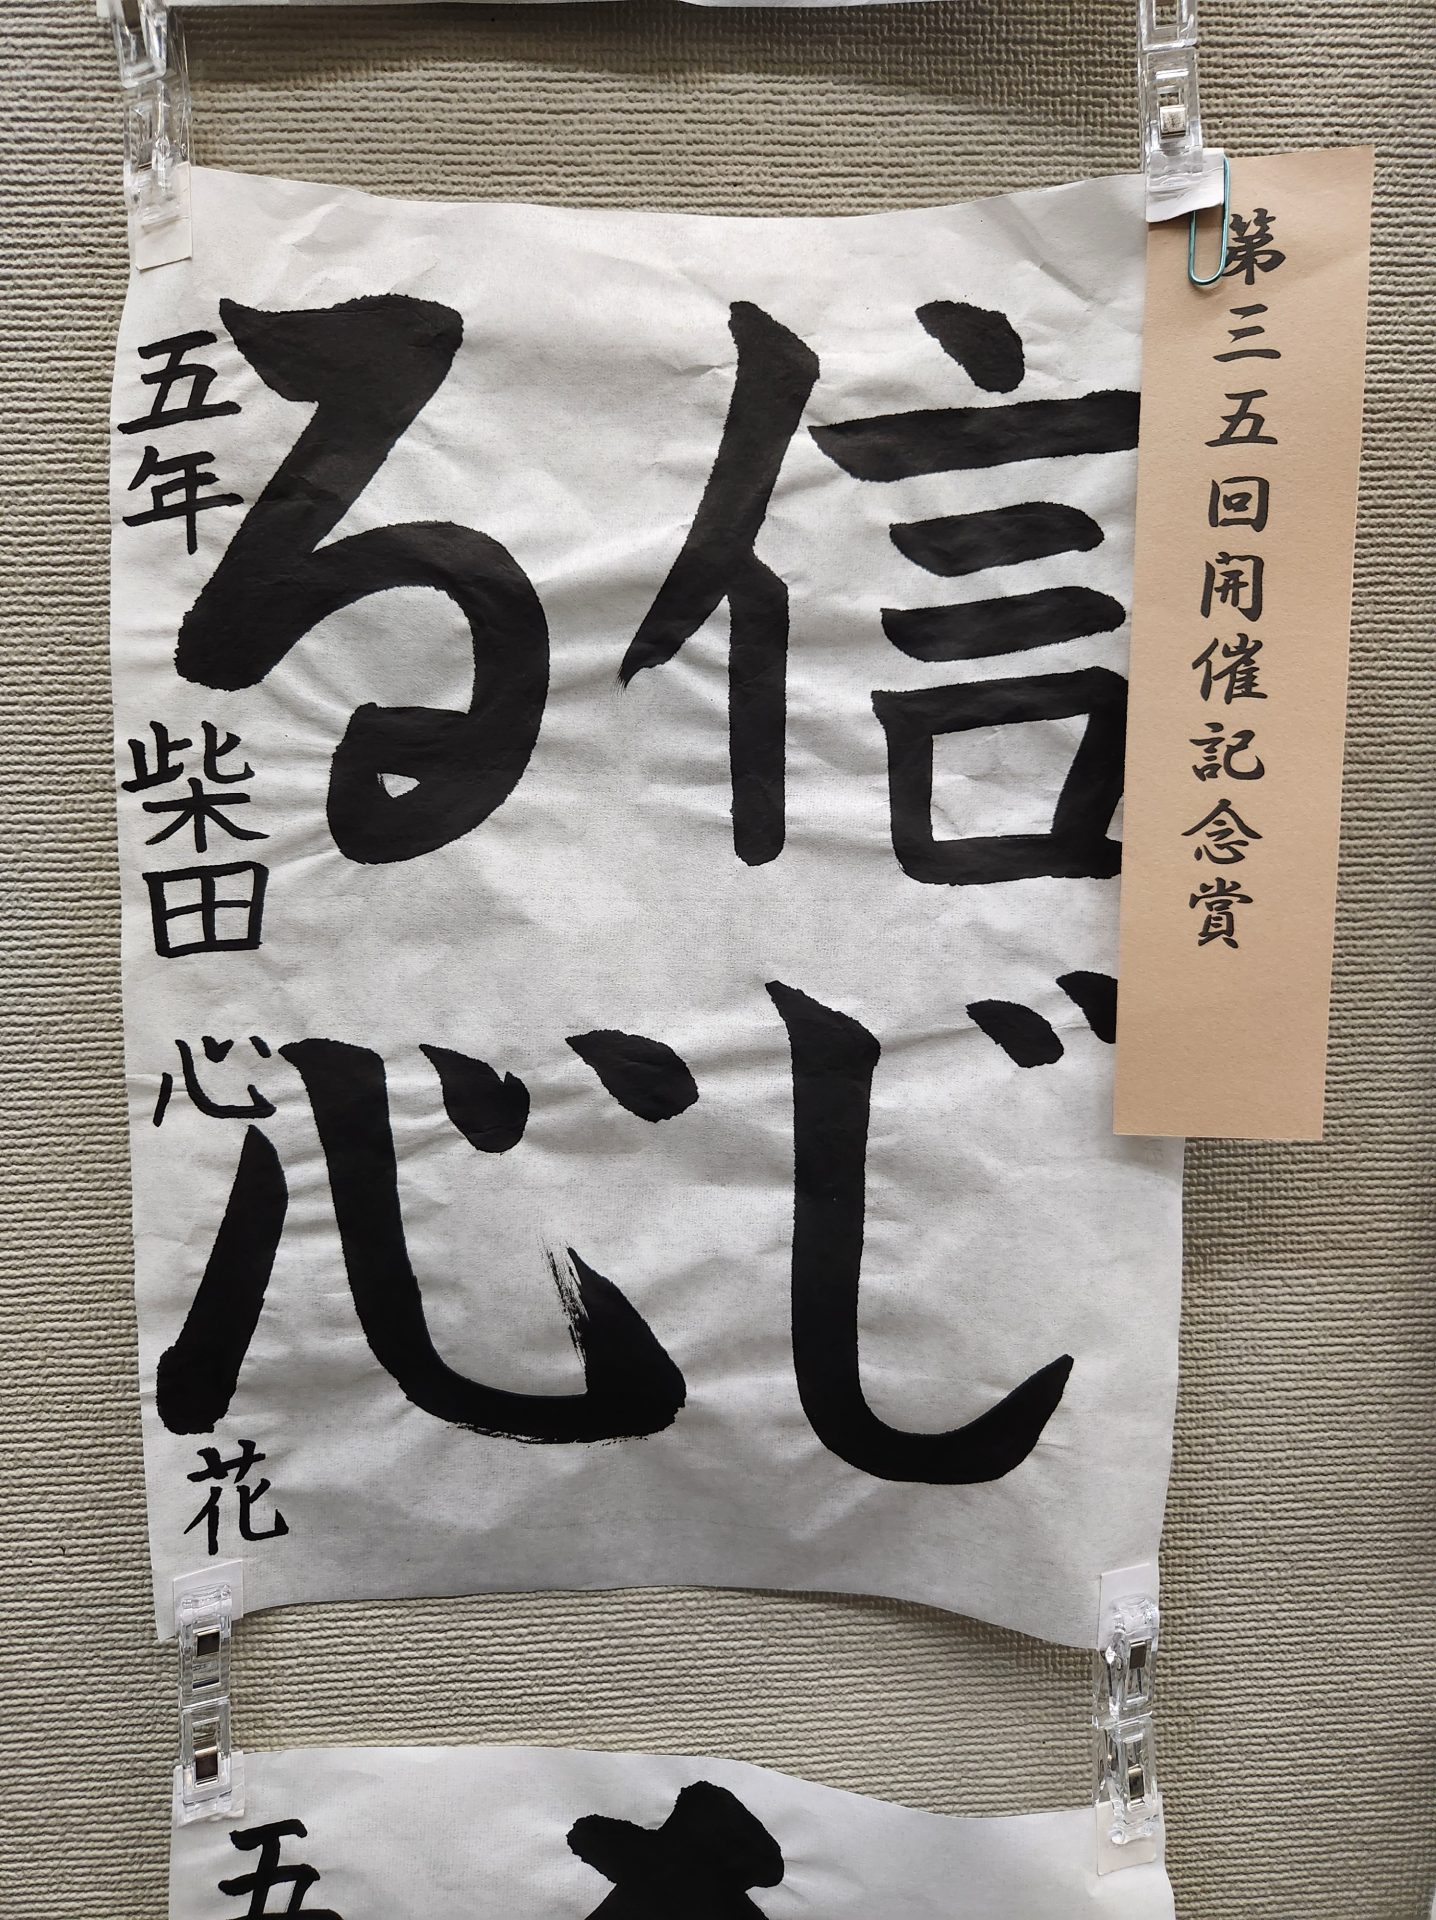 第三五回開催記念賞
信じ
る心
五年 柴田 心花
五